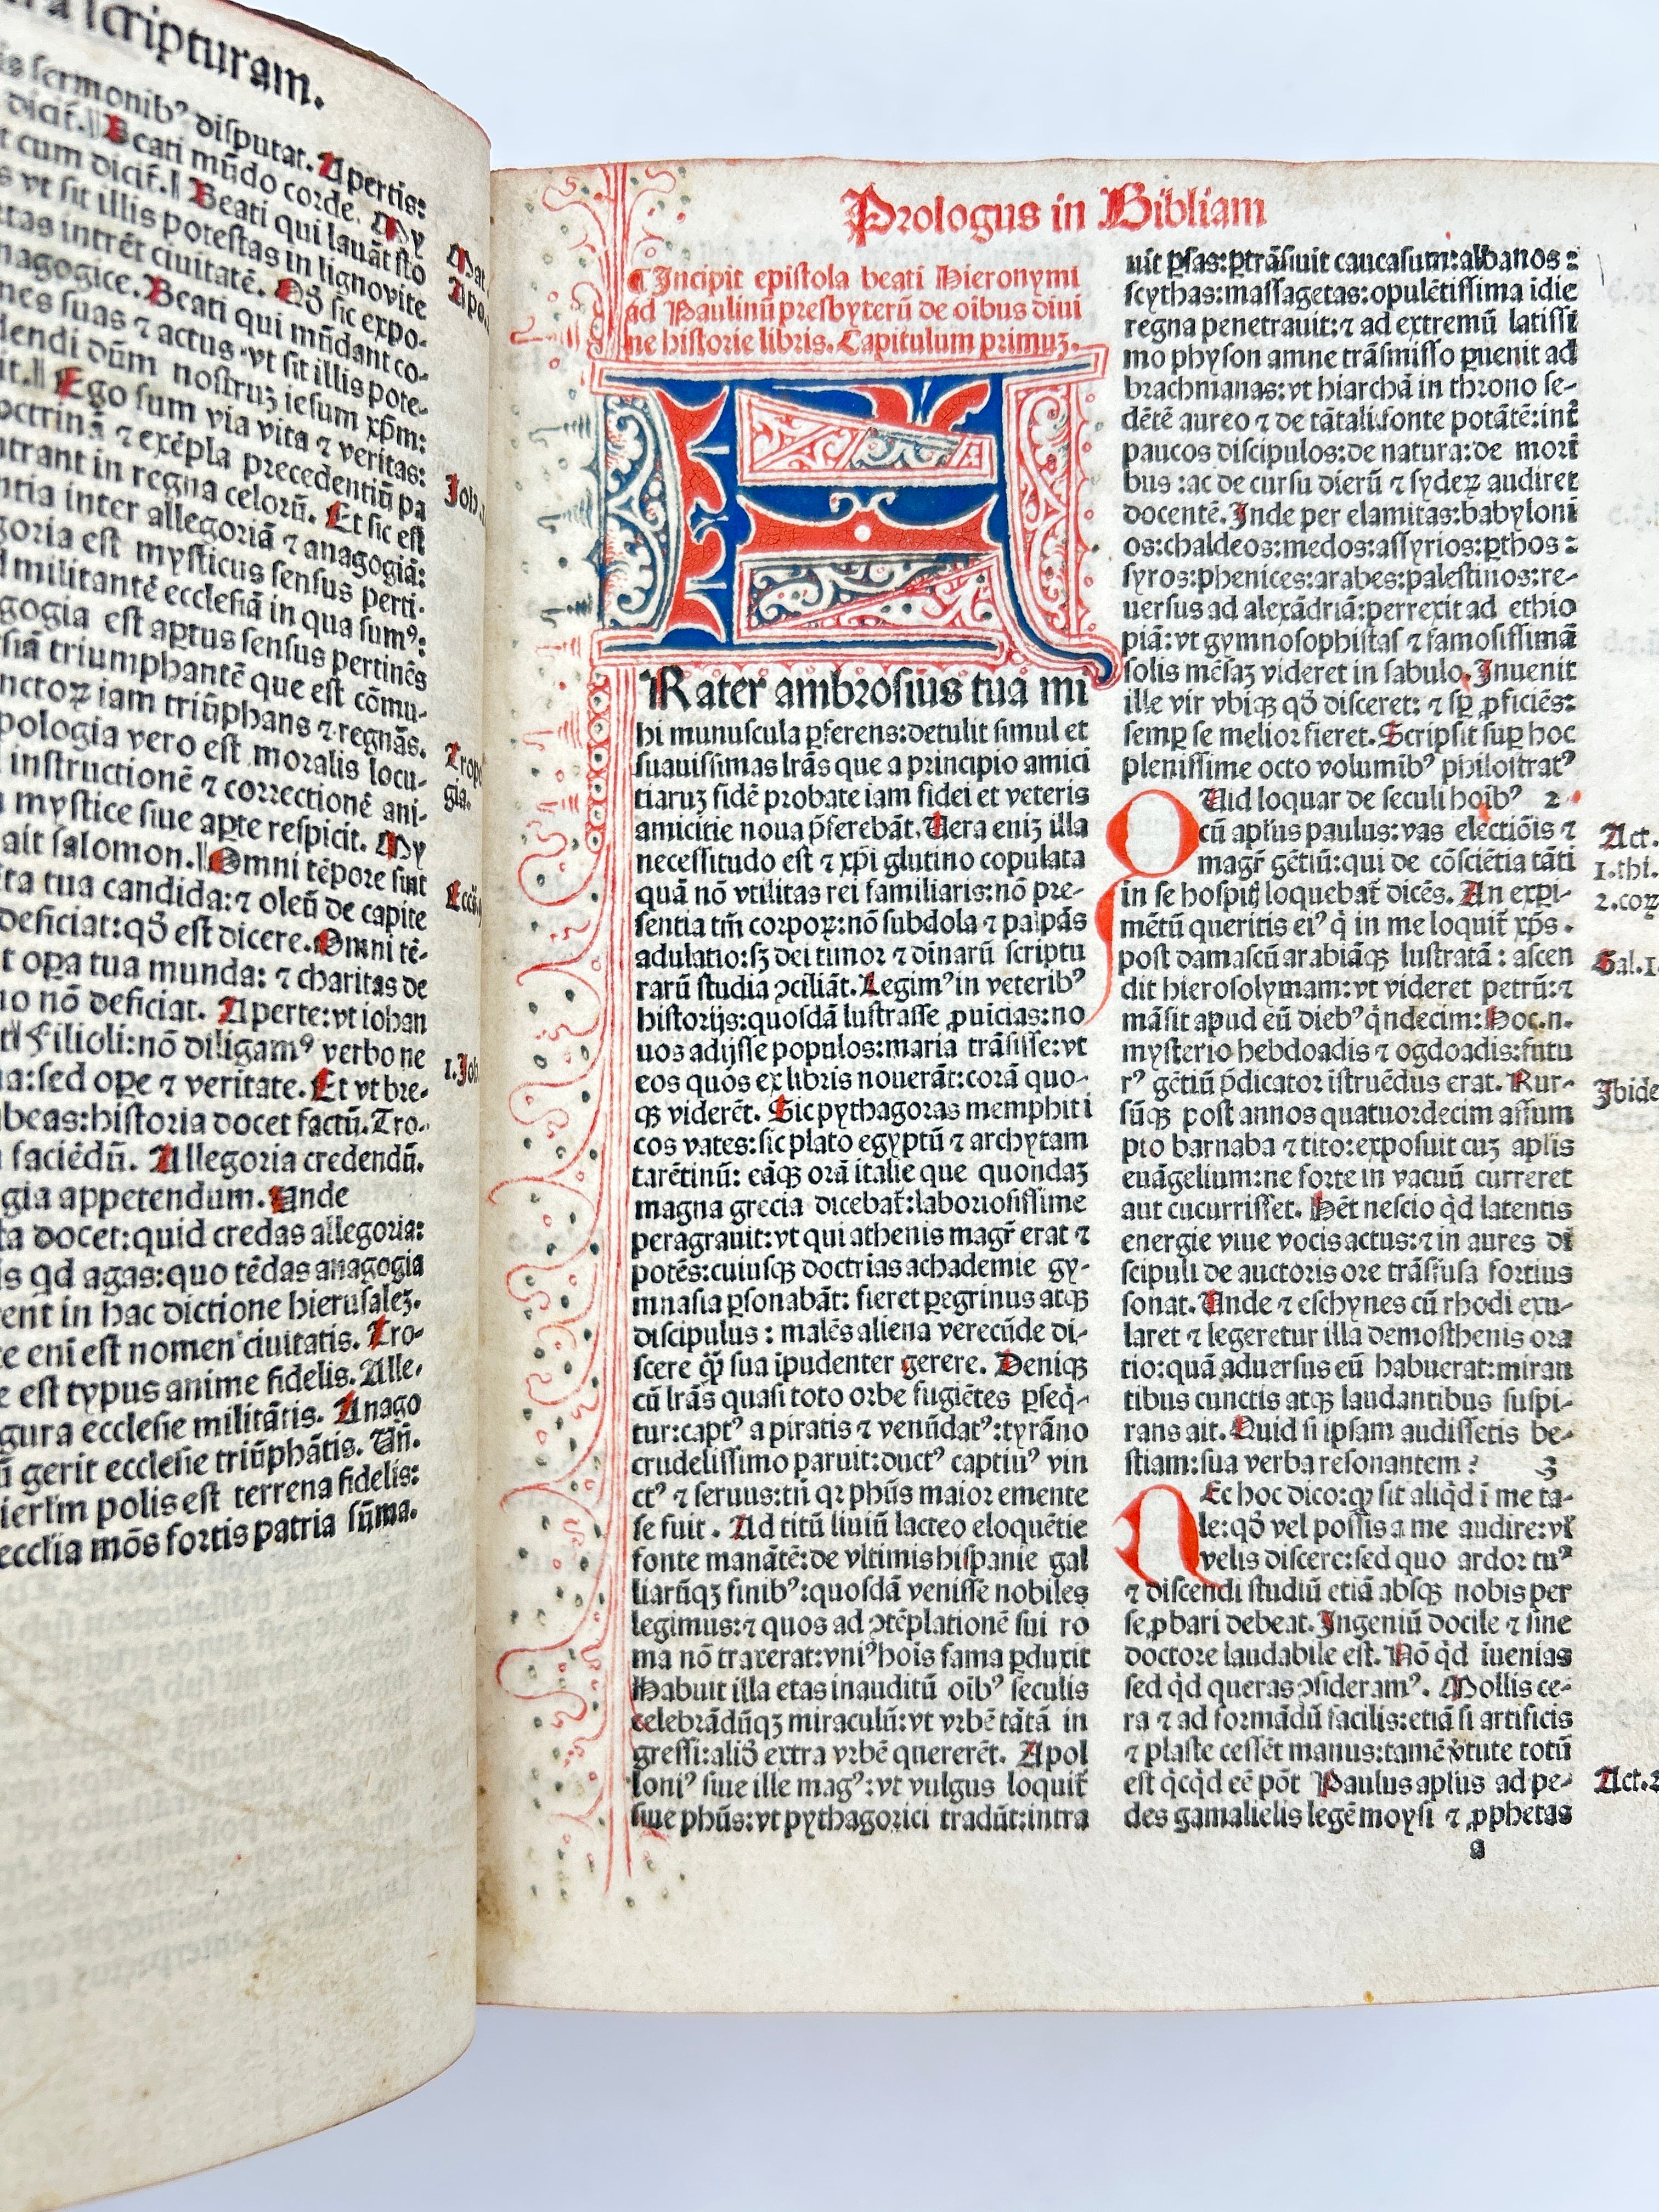 ra scripturam.
is sermonib⁹ disputat. Apertis:
dicit̄.‖ Beati mūdo corde. My
t cum dicit̄.‖ Beati qui lauāt sto
s vt sit illis potestas in ligno vite
intrēt ciuitatē. Qđ sic expo-
nagogice. Beati qui mūdant co-
nes suas ⁊ actus vt sit illis pote-
dendi dūm nostruꝫ iesum xp̄m:
it.‖ Ego sum via vita ⁊ veritas:
octrinā ⁊ exēpla precedentiū pa
ntrant in regna celorū. Et sic est
ntia inter allegoriā ⁊ anagogiā:
goria est mysticus sensus perti-
d militantē ecclesiā in qua sum⁹:
gogia est aptus sensus pertinēs
siā triumphantē que est cōmu-
nctoꝝ iam triūphans ⁊ regnās.
pologia vero est moralis locu-
instructionē ⁊ correctionē ani-
mystice siue apte respicit. My
ait salomon.‖ Omni tēpore sint
ta tua candida: ⁊ oleū de capite
deficiat: qđ est dicere. Omni tē-
t oꝑa tua munda: ⁊ charitas de
no nō deficiat. Aperte: vt iohan
Filioli: nō diligam⁹ verbo ne
a: sed oꝑe ⁊ veritate. Et vt bre-
beas: historia docet factū. Tro-
faciēdū. Allegoria credendū.
gia appetendum. Unde
ta docet: quid credas allegoria:
is qđ agas: quo tēdas anagogia
rent in hac dictione hierusaleꝫ.
te eni est nomen ciuitatis. Tro-
e est typus anime fidelis. Alle-
gura ecclesie militātis. Anago
ū gerit ecclesie triūphātis. Uñ.
ierl̄m polis est terrena fidelis:
ecclia mōs fortis patria sūma.
Mat.
Apo.
Joh.
Tropo
gia.
Eccs.
1.Joh
Prologus in Bibliam
¶Incipit epistola beati Hieronymi
ad Paulinū presbyterū de oībus diui
ne historie libris. Capitulum primuꝫ.
FRater ambrosius tua mi
hi munuscula ꝑferens: detulit simul et
suauissimas lr̄as que a principio amici
tiaruꝫ fidē probate iam fidei et veteris
amicitie noua p̄ferebāt. Uera eniꝫ illa
necessitudo est ⁊ xp̄i glutino copulata
quā nō vtilitas rei familiaris: nō pre-
sentia tm̄ corpoꝝ: nō subdola ⁊ palpās
adulatio: sꝫ dei timor ⁊ diuinarū scriptu
rarū studia ꝯciliāt. Legim⁹ in veterib⁹
historijs: quosdā lustrasse ꝓuicias: no
uos adijsse populos: maria trāsisse: vt
eos quos ex libris nouerāt: corā quo-
qꝫ viderēt. Sic pythagoras memphiti
cos vates: sic plato egyptū ⁊ archytam
tarētinū: eāqꝫ orā italie que quondaꝫ
magna grecia dicebat̄: laboriosissime
peragrauit: vt qui athenis magr̄ erat ⁊
potēs: cuiusqꝫ doctrias achademie gy-
mnasia ꝑsonabāt: fieret ꝑegrinus atqꝫ
discipulus: malēs aliena verecūde di-
scere qꝫ̄ sua īpudenter gerere. Deniqꝫ
cū lr̄as quasi toto orbe fugiētes ꝑseq̄-
tur: capt⁹ a piratis ⁊ venūdat⁹: tyrāno
crudelissimo paruit: duct⁹ captiu⁹ vin
ct⁹ ⁊ seruus: tn̄ qꝛ phūs maior emente
se fuit. Ad titū liuiū lacteo eloquētie
fonte manātē: de vltimis hispanie gal
liarūqꝫ finib⁹: quosdā venisse nobiles
legimus: ⁊ quos ad ꝯtēplationē sui ro
ma nō traxerat: vni⁹ hois fama ꝑduxit
Habuit illa etas inauditū oīb⁹ seculis
celebrādūqꝫ miraculū: vt vrbē tātā in
gressi: aliđ extra vrbē quererēt. Apol
loni⁹ siue ille mag⁹: vt vulgus loquit̄
siue phūs: vt pythagorici tradūt: intra
uit ꝑsas: ꝑtrāsiuit caucasum: albanos:
scythas: massagetas: opulētissima idie
regna penetrauit: ⁊ ad extremū latissi
mo physon amne trāsmisso ꝑuenit ad
brachmanas: vt hiarchā in throno se-
dētē aureo ⁊ de tātali fonte potātē: int̄
paucos discipulos: de natura: de mori
bus: ac de cursu dierū ⁊ sydeꝝ audiret
docentē. Inde per elamitas: babyloni
os: chaldeos: medos: assyrios: ꝑthos:
syros: phenices: arabes: palestinos: re-
uersus ad alexādriā: perrexit ad ethio
piā: vt gymnosophistas ⁊ famosissimā
solis mēsaꝫ videret in sabulo. Inuenit
ille vir vbiqꝫ qđ disceret: ⁊ sꝑ ꝓficiēs:
semꝑ se melior fieret. Scripsit suꝑ hoc
plenissime octo volumīb⁹ philostrat⁹
QUid loquar de seculi hoīb⁹ 2
cū apl̄us paulus: vas electiōis ⁊
magr̄ gētiū: qui de cōsciētia tāti
in se hospitꝭ loquebat̄ dicēs. An exꝑi-
mētū queritis ei⁹ q̇ in me loquit̄ xp̄s.
post damascū arabiāqꝫ lustratā: ascen
dit hierosolymam: vt videret petrū: ⁊
māsit apud eū dieb⁹ q̇ndecim: Hoc.n.
mysterio hebdoadis ⁊ ogdoadis: futu
r⁹ gētiū p̄dicator istruēdus erat. Rur-
sūqꝫ post annos quatuordecim assum
pto barnaba ⁊ tito: exposuit cuꝫ aplīs
euāgelium: ne forte in vacuū curreret
aut cucurrisset. Hēt nescio qđ latentis
energie viue vocis actus: ⁊ in aures di
scipuli de auctoris ore trāsfusa fortius
sonat. Unde ⁊ eschynes cū rhodi exu-
laret ⁊ legeretur illa demosthenis ora
tio: quā aduersus eū habuerat: miran
tibus cunctis atqꝫ laudantibus suspi-
rans ait. Quid si ipsam audissetis be-
stiam: sua verba resonantem? 3
NEc hoc dico: qꝙ sit aliq̇d ī me ta-
le: qđ vel possis a me audire: vl̄
velis discere: sed quo ardor tu⁹
⁊ discendi studiū etiā absqꝫ nobis per
se ꝓbari debeat. Ingeniū docile ⁊ sine
doctore laudabile est. Nō q̇d iuenias
sed q̇d queras ꝯsideram⁹. Mollis ce-
ra ⁊ ad formādū facilis: etiā si artificis
⁊ plaste cessēt manus: tamē v̓tute totū
est q̇cq̇d eē pōt Paulus apl̄us ad pe-
des gamalielis legē moysi ⁊ ꝓphetas
a
Act.
1.thi.
2.coꝝ
Gal.1.
Ibide
Act.2